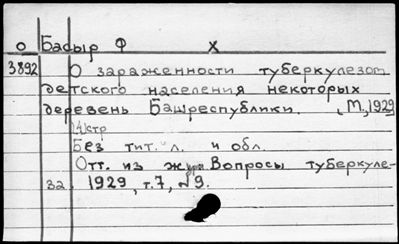 О Басыр Ф Х
3892 О зараженности туберкулезом
детского населения некоторых
деревень Башреспублики. , М., 1929
14 стр
Без тит. л. и обл.
Отт. из журн Вопросы туберкуле-
32 1929, т.7, №9.